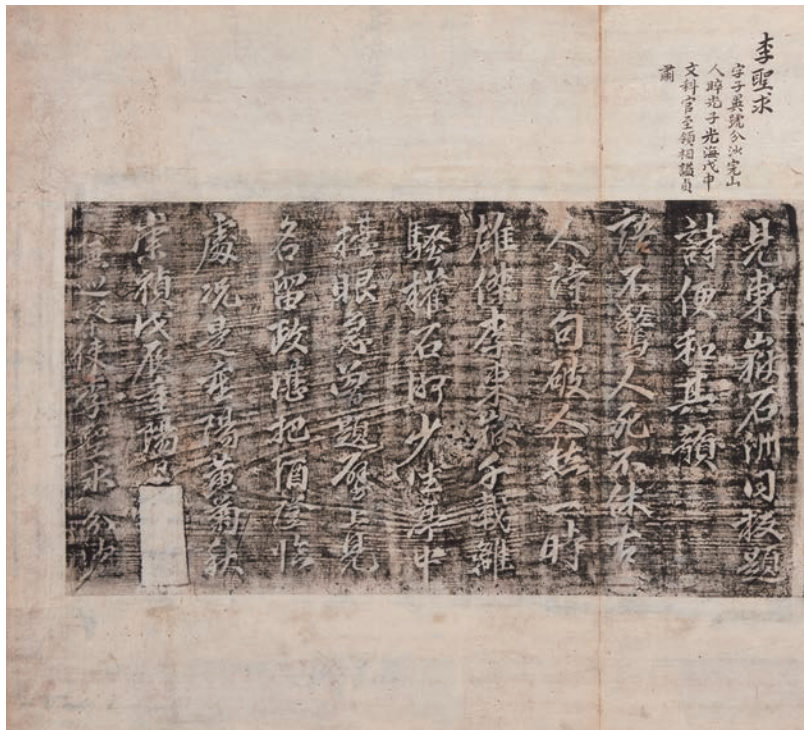 李聖求
字子異號分沙完山
人睟光子光海戊申
文科官至領相諡貞
肅
見東嶽石洲板題
詩便和其韻
語不驚人死不休古
人詩句破人愁一時
雄傑李東嶽千載離
騷權石洲少坐亭中
擡眼急曾題壁上見
名留政把酒登臨
處況是重陽黃菊秋
崇禎戊辰重陽日
巡使李聖求 分沙